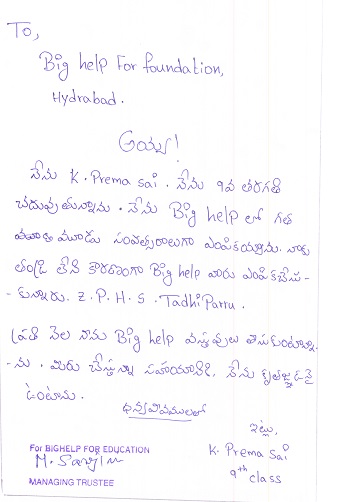 To,
Big help For foundation,
Hydrabad.
అయ్య!
నేను K. Prema sai. నేను 9వ తరగతి
చదువుతున్నాను. నేను Big help లో గత
మూడు సంవత్సరాలుగా ఎంపికయ్యాను. నాకు
తండ్రి లేని కారణంగా Big help వారు ఎంపికచేసు-
-కున్నారు. Z.P.H.S. TadhiParru.
ప్రతి నెల నాను Big help వస్తువులు తీసుకుంటున్నా-
-ను. మిరు చేస్తున్నా సహాయానికి, నేను కృతజ్ఞుడనై
ఉంటాను.
ధన్యవాదములతో
ఇట్లు,
K. Prema Sai
9th class
For BIGHELP FOR EDUCATION
MANAGING TRUSTEE